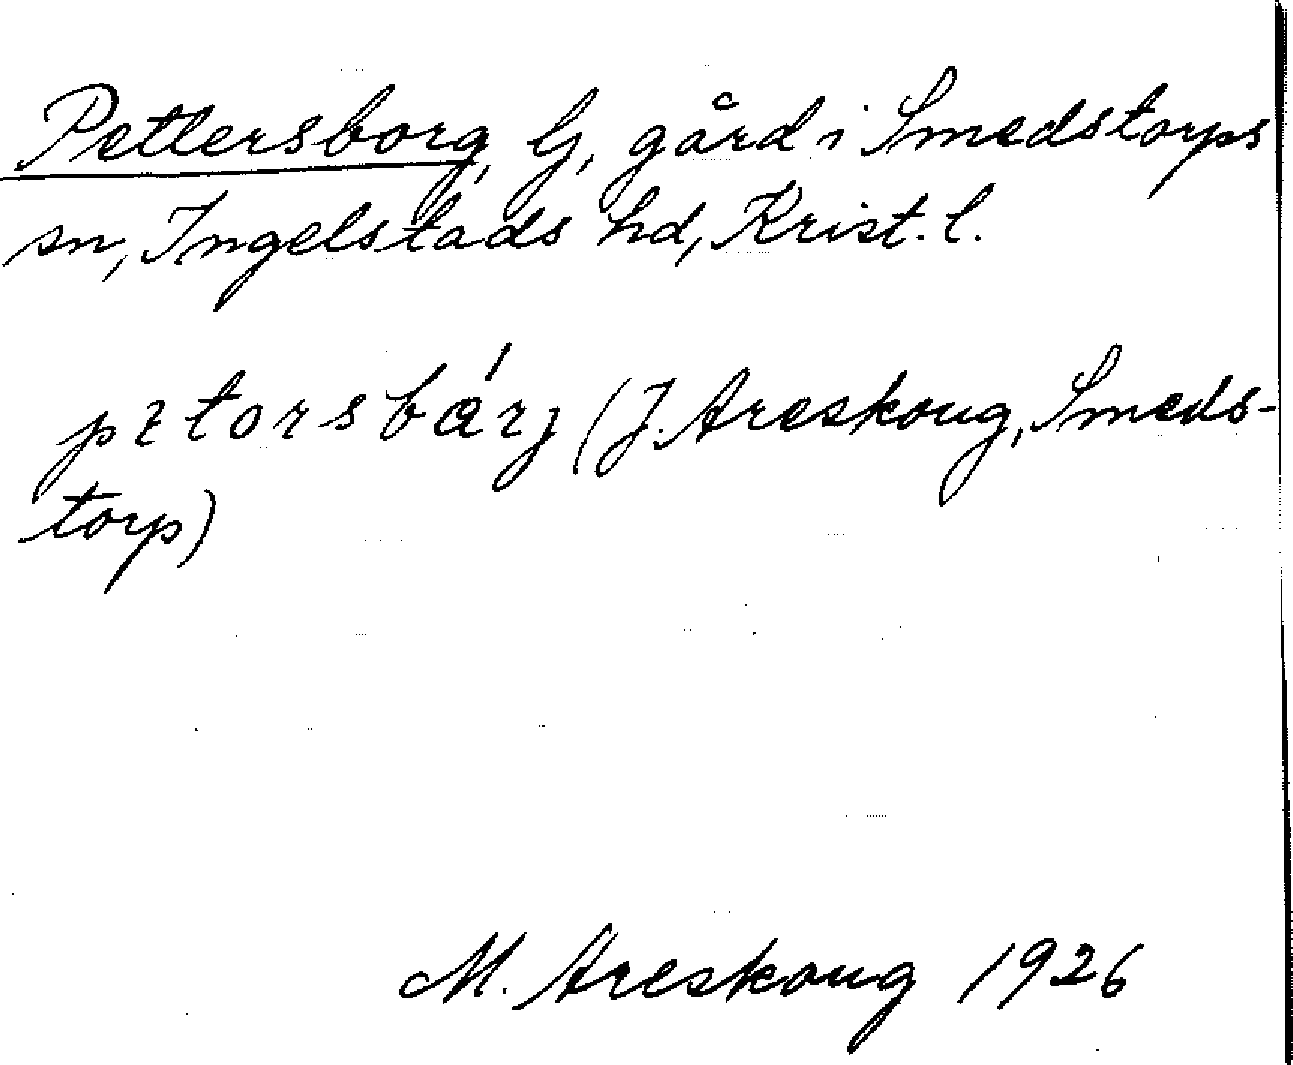 Pettersborg, lj, gård i Smedstorps
sn, Ingelstads hd, Krist. l.
(J. Areskoug, Smeds-
torp)
M. Areskoug 1926